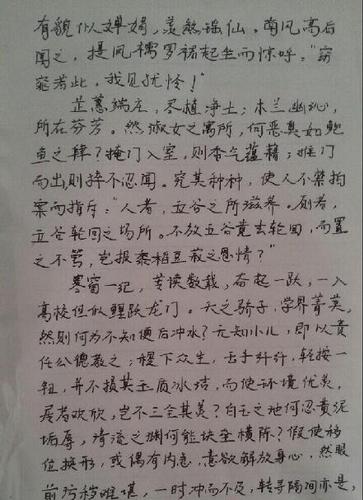 有貌似婵娟，羡煞瑶仙。南风高后
闻之，提凤褥罗裙起坐而惊呼："窈
窕若此，我见犹怜！"
芷蕙端庄，尽植净土；木兰幽沁，
所在芬芳。然淑女之寓所，何恶臭如鲍
鱼之肆？掩门入室，则香气蕴藉；推门
而出则猝不忍闻。究其种种，使人不禁拍
案而指斥："人者，五谷之所滋养。厕者，
五谷轮回之场所。不放五谷竟去轮回，而置
之不管，岂报黍稻豆菽之恩情？"
寒窗一纪，苦读数载，奋起一跃，一入
高校但似鲤跃龙门。天之骄子，学界菁英，
然则何为不知便后冲水？无知小儿，即以责
任公德教之；墀下众生，去手纤纤，轻按一
钮，并不损其玉质冰洁，而使环境优美，
居者欢欣，岂不三全其美？白玉之地何忍黄泥
垢辱，清流之渊何能块垒横陈？假使移
位换形，或偶有内急，意欲解放身心，然眼
前污秽难堪，一时冲而不及，转寻隔间亦是